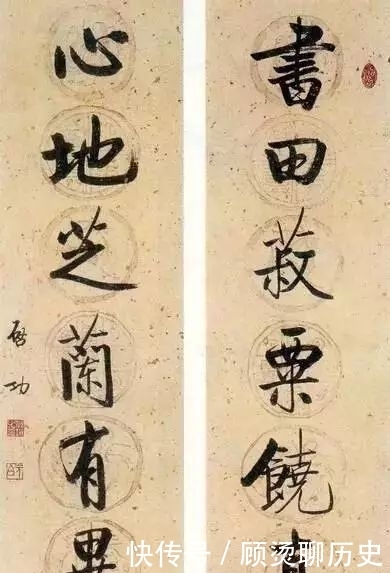 書田菽粟饒
心地芝蘭有異
啟功
快传号 / 顾烫聊历史